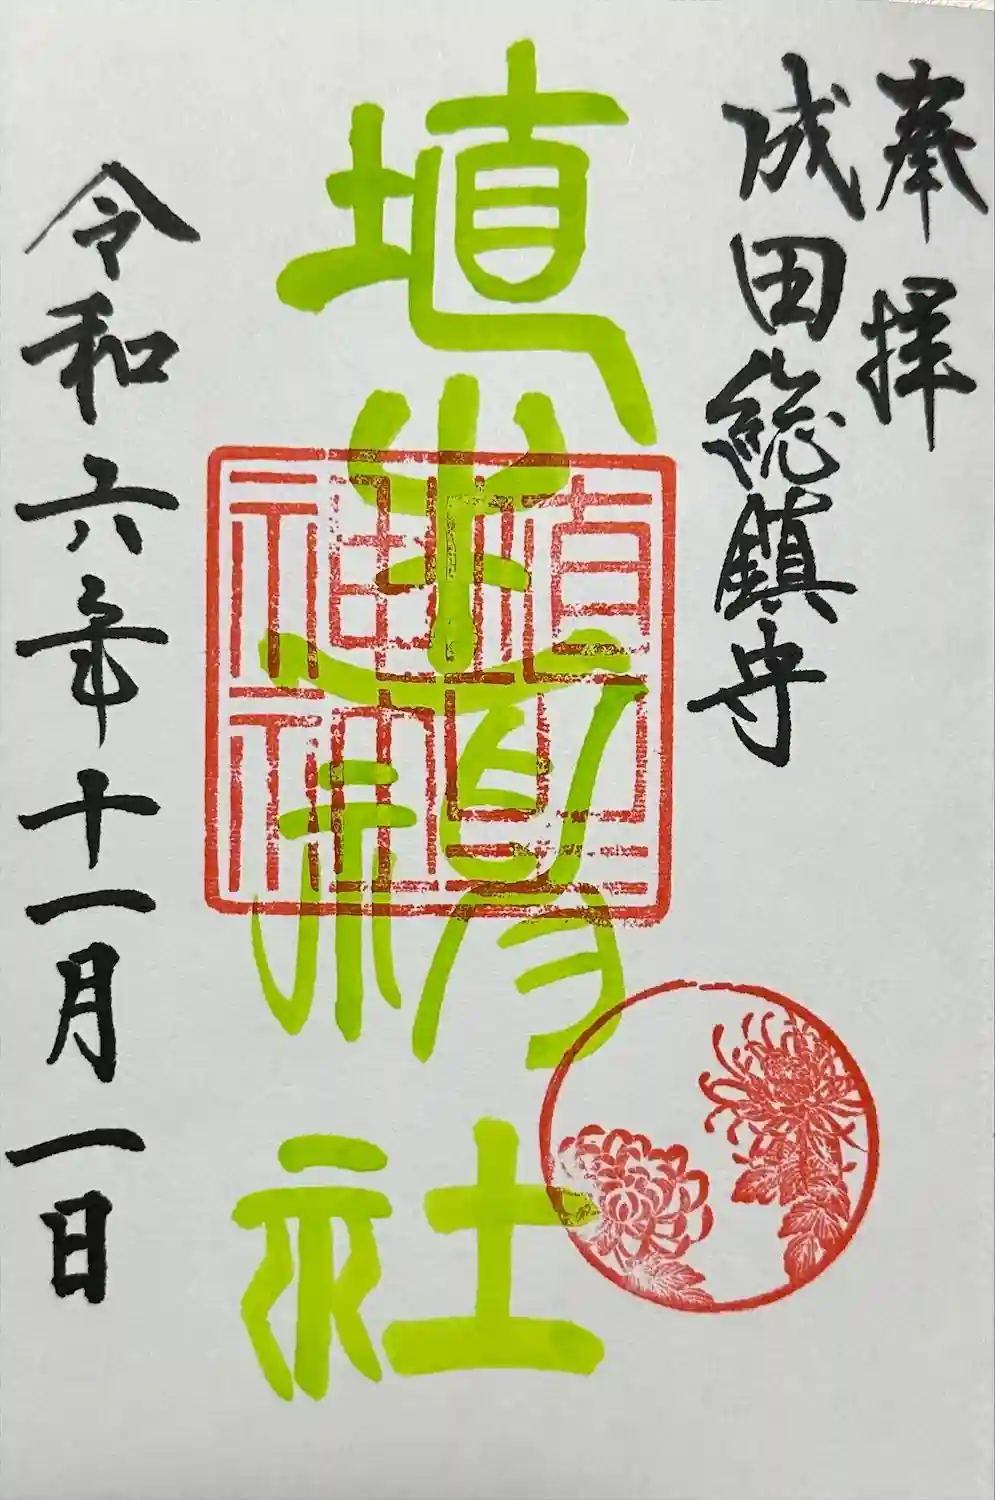 奉拝
成田総鎮守
埴生神社
令和六年十一月一日